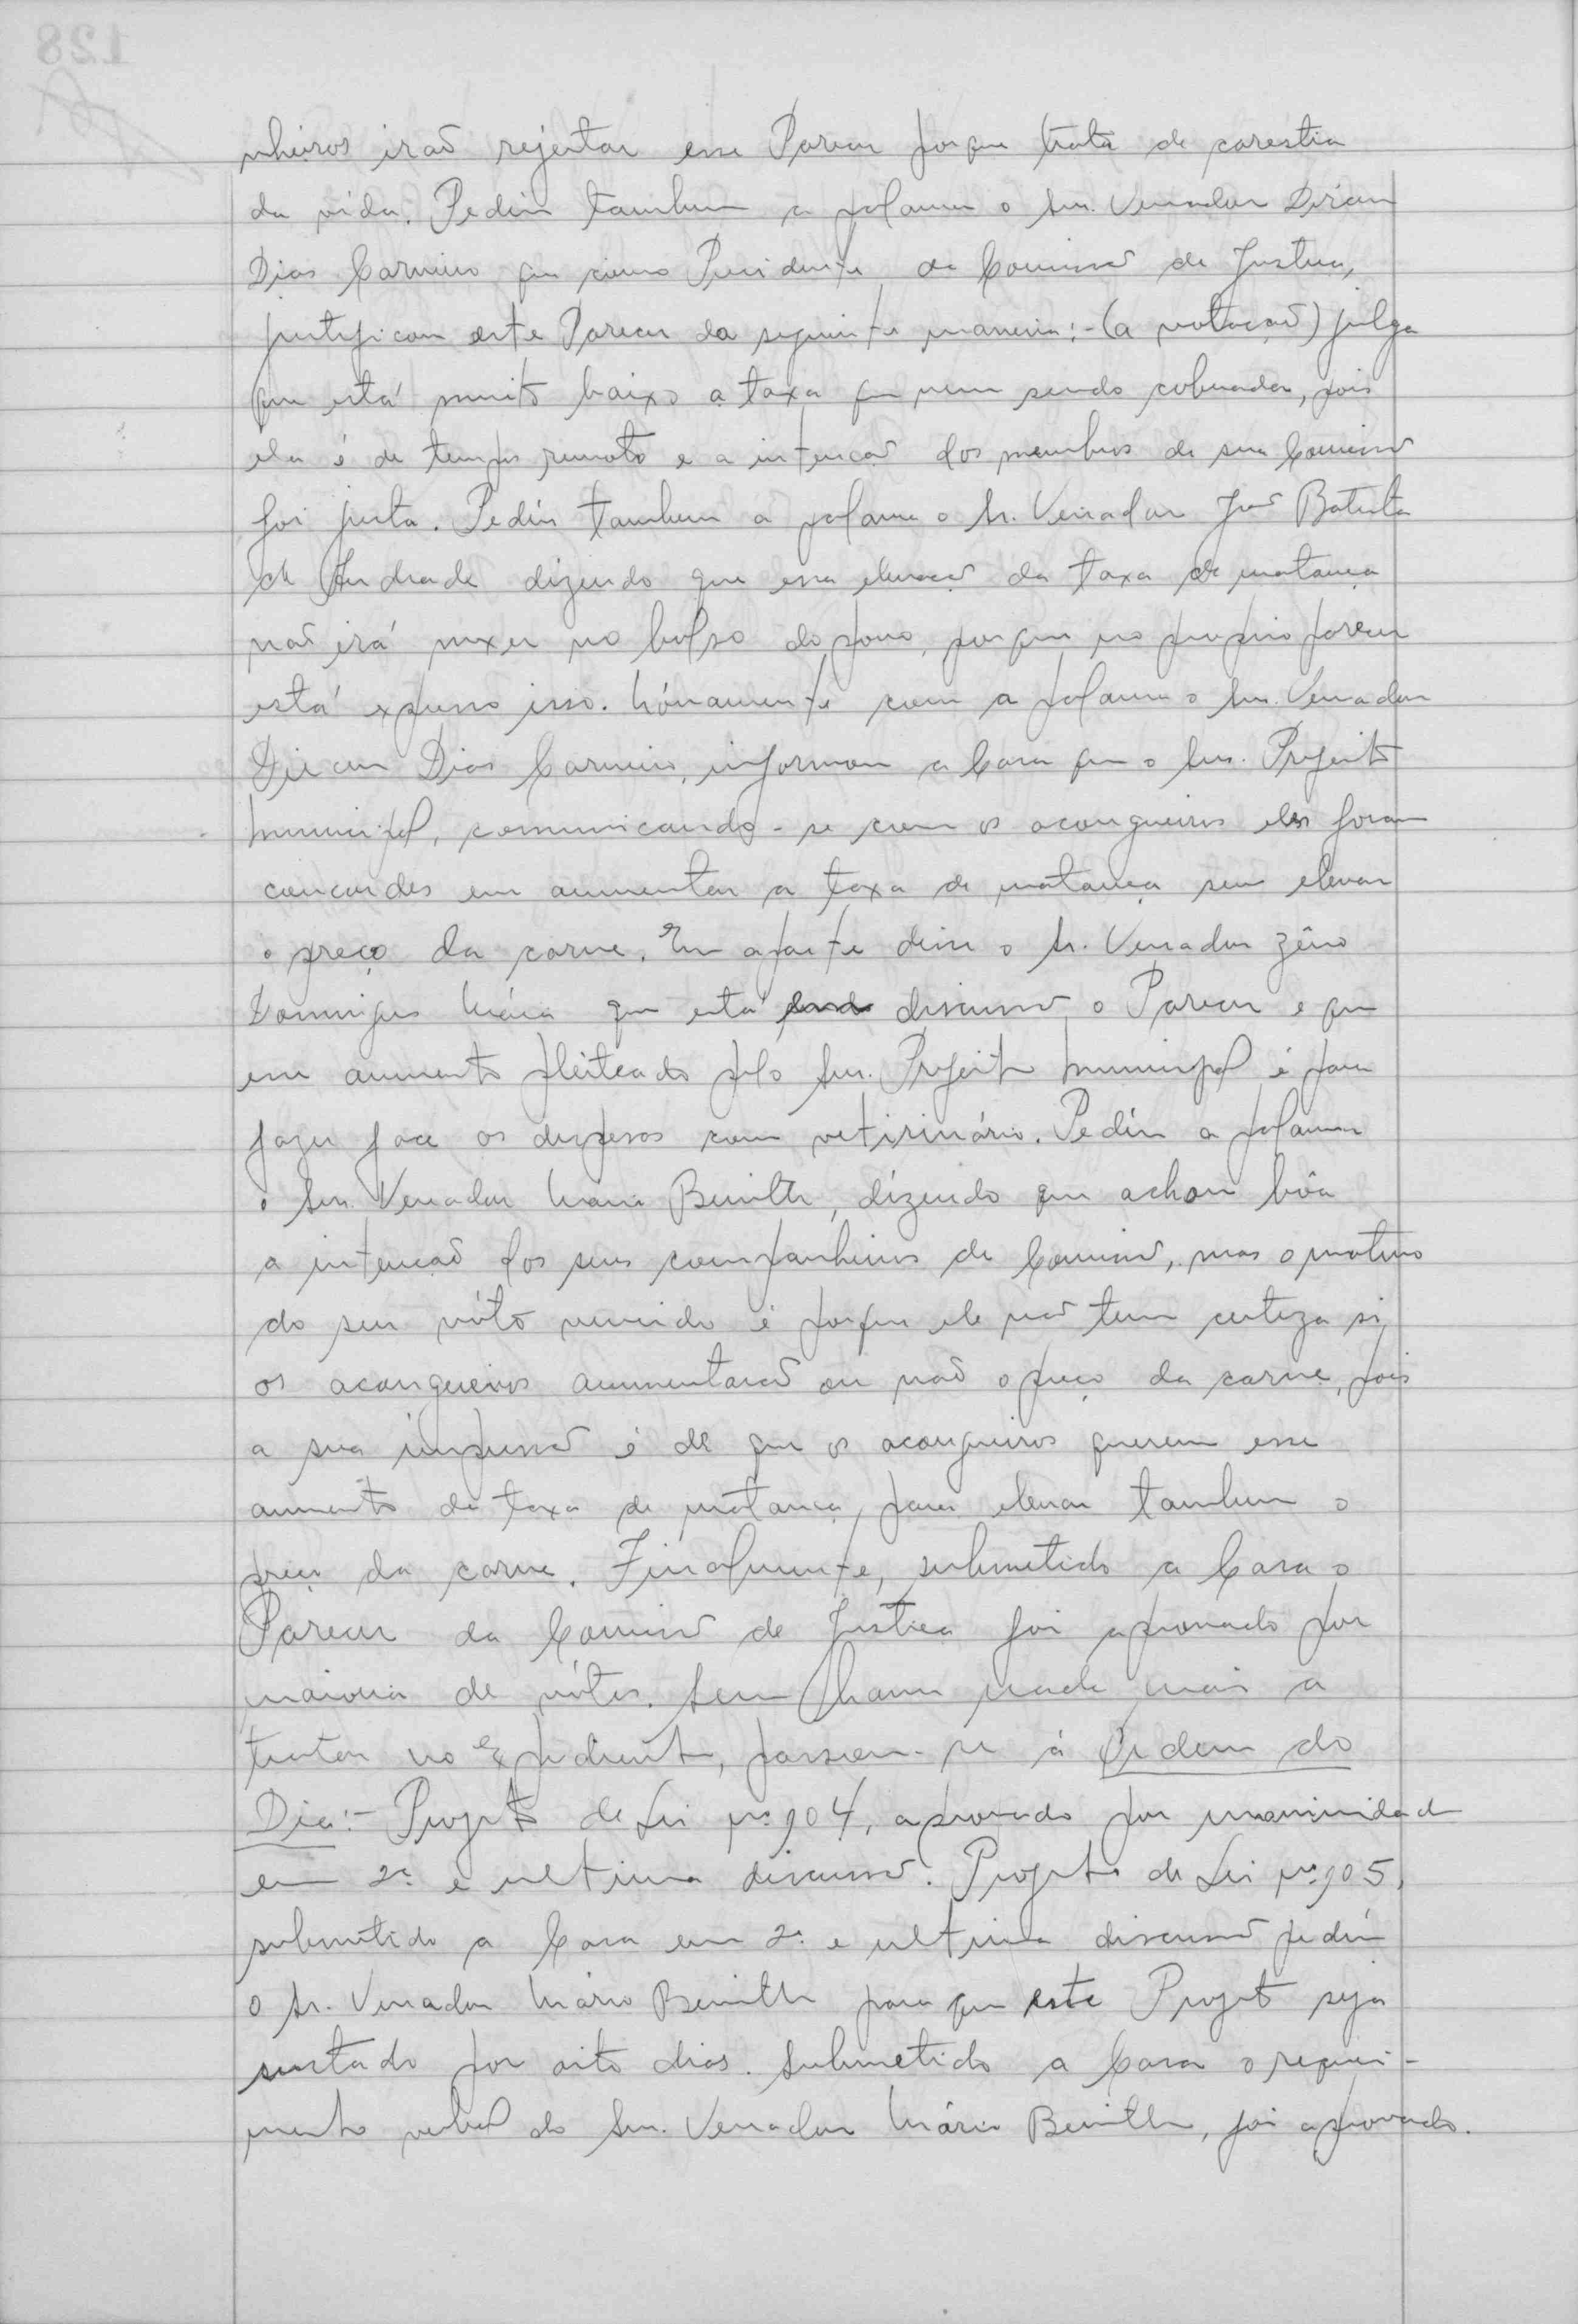 nheiros iraõ rejeitar esse Parecer porque trata de carestia
da vida. Pediu tambem a palavra o Snr. Vereador Dirceu
Dias Carneiro que como Presidente da Comissaõ de Justiça,
justificou este Parecer da seguinte maneira:-(a votaçaõ) julga
que está muito baixo a taxa que vem sendo cobrada, pois
ela é de tempo remoto e a intençaõ dos membros de sua Comissaõ
foi justa. Pediu tambem a palavra o Sr. Vereador Joaõ Batista
de Andrade dizendo que essa elevaçaõ da taxa de matança
naõ irá mexer no bolso do povo, porque no proprio parecer
está expresso isso. Nóvamente com a palavra o Snr. Vereador
Dirceu Dias Carneiro, informou a Casa que o Snr. Prefeito
Municipal, comunicando-se com os açougueiros eles foram
concordes em aumentar a taxa de matança sem elevar
o preço da carne. Em aparte disse o Sr. Vereador Zêno
Domingues que está discussaõ o Parecer e que
esse aumento pleiteado pelo Snr. Prefeito Municipal é para
fazer face os despesas com vetirinário. Pediu a palavra
o Snr. Vereador Mario Benith, dizendo que achou bôa
a intençaõ dos seus companheiros de Comissaõ, mas o motivo
do seu vóto vencido é porque ele naõ tem certeza si
os açougueiros aumentaraõ ou naõ o preço da carne, pois
a sua impressaõ é de que os açougueiros querem esse
aumento da taxa de matança, para elevar tambem o
preço da carne. Finalmente, submetido a Casa o
Parecer da Comissaõ de Justiça foi aprovado por
maioria de vótos. Sem haver nada mais a
tratar no expediente, passou-se á Ordem do
Dia:- Projeto de Lei nº 904, aprovado por unanimidade
em 2ª e ultima discussaõ. Projeto de Lei nº 905,
submetido a Casa em 2ª e ultima discussaõ pediu
o Sr. Vereador Mário Benith para que este Projeto seja
sustado por oito dias. Submetido a Casa o requeri-
mento verbal do Snr. Vereador Mário Benith, foi aprovado.